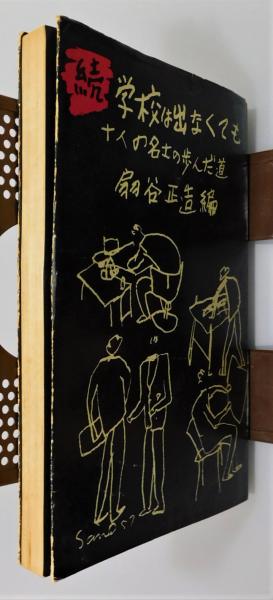 続
学校は出なくても
十人の名士の歩んだ道
扇谷正造編